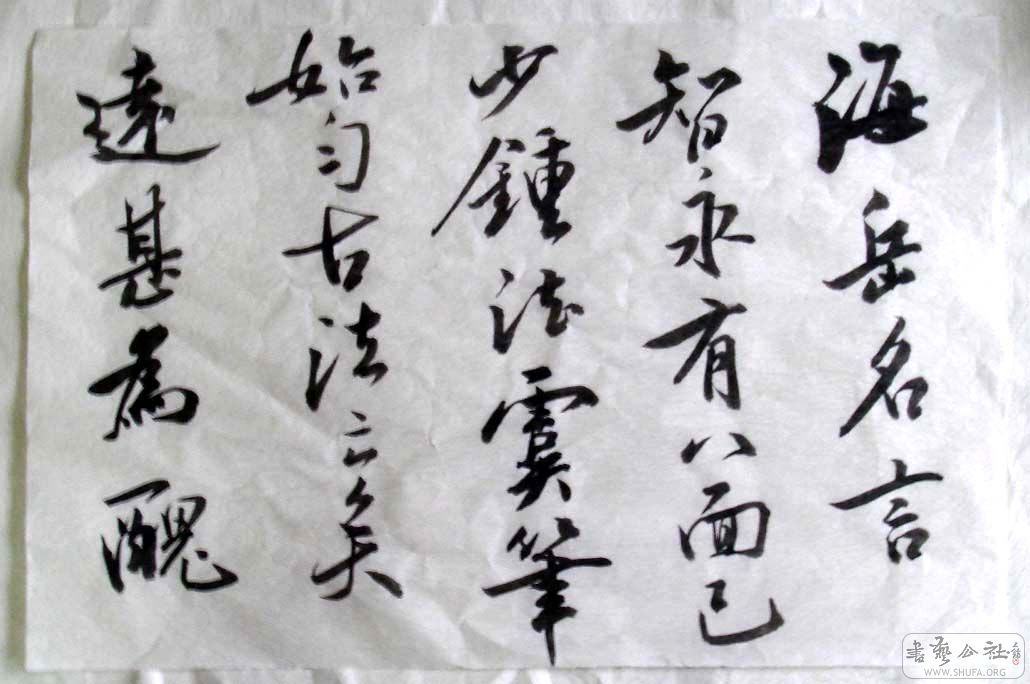 海岳名言
智永有八面已
少鍾法虞筆
始匀古法亡矣
遠甚為醜
書藝公社
WWW.SHUFA.ORG